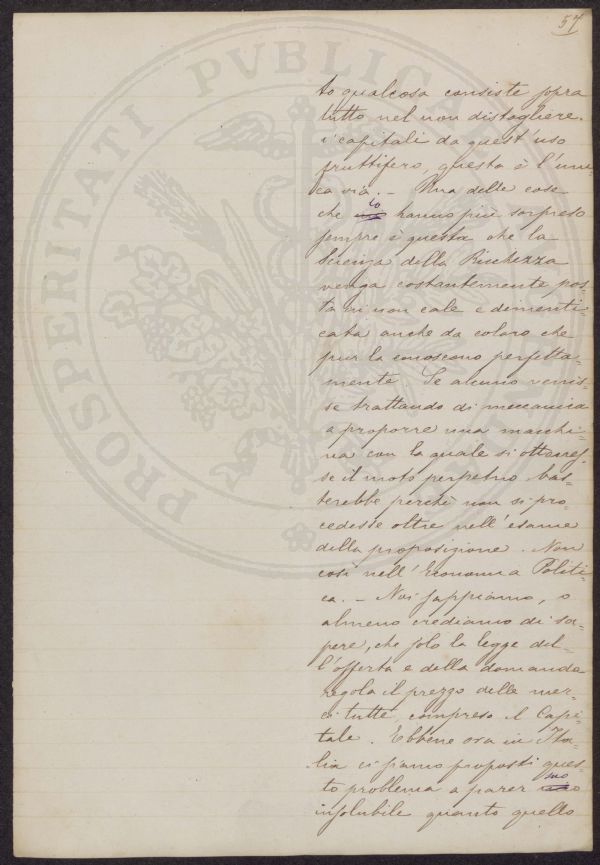 57
to qualcosa consiste sopra
tutto nel non distogliere
i capitali da quest'uso
fruttifero, questa è l'uni-
ca via. - Una delle cose
che lo hanno più sorpreso
sempre è questa che la
Scienza della Ricchezza
venga costantemente pos-
ta in non cale e dimenti-
cata anche da coloro che
pur la conoscono perfetta-
mente. Se alcuno venis-
se trattando di meccanica
a proporre una macchi-
na con la quale si ottenes-
se il moto perpetuo bas-
terebbe perchè non si pro-
cedesse oltre nell'esame
della proposizione. Non
così nell'Economia Politi-
ca. - Noi sappiamo, o
almeno crediamo di sa-
pere, che solo la legge del-
l'offerta e della domanda
regola il prezzo delle mer-
ci tutte, compreso il Capi-
tale. Ebbene ora in Ita-
lia ci siamo proposti ques-
to problema a parer suo
insolubile quanto quello
PROSPERITATI PVBLICAE